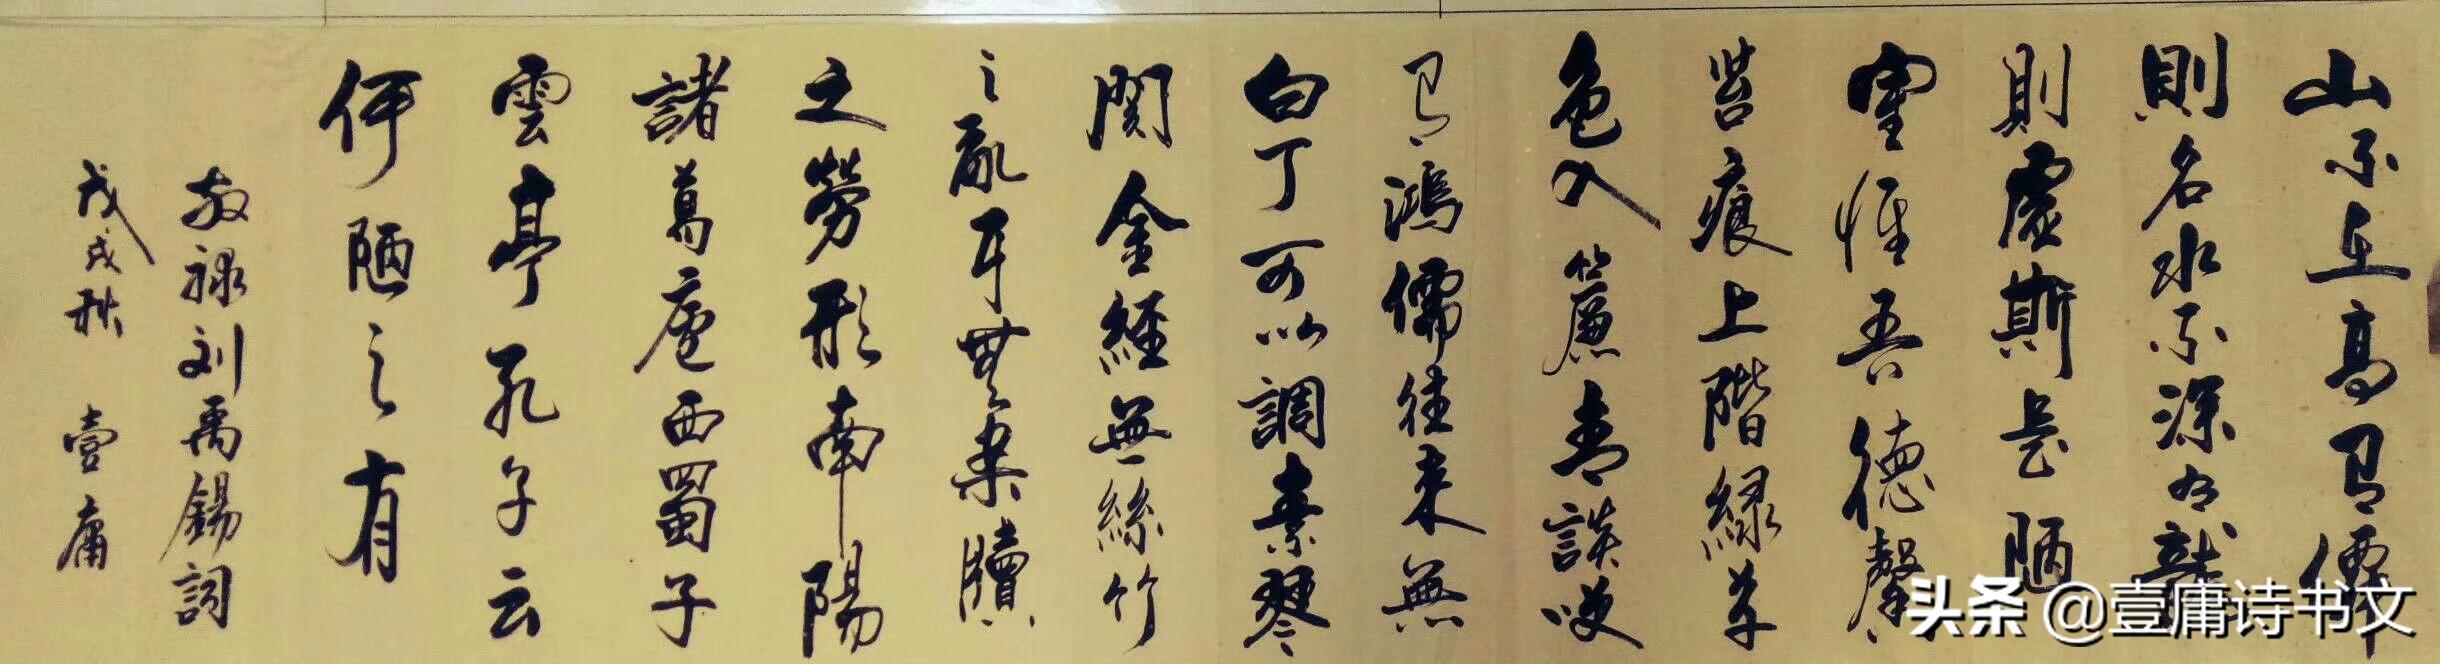 山不在高有僊
則名水不深有龍
則靈斯是陋
室惟吾德馨
苔痕上階緑草
色入簾青談咲
有鴻儒往来無
白丁可以調素琴
閲金經無絲竹
之亂耳無案牘
之勞形南陽
諸葛廬西蜀子
雲亭孔子云
何陋之有
敬禄刘禹錫詞
戊戌秋 壹庸
头条 @壹庸诗书文